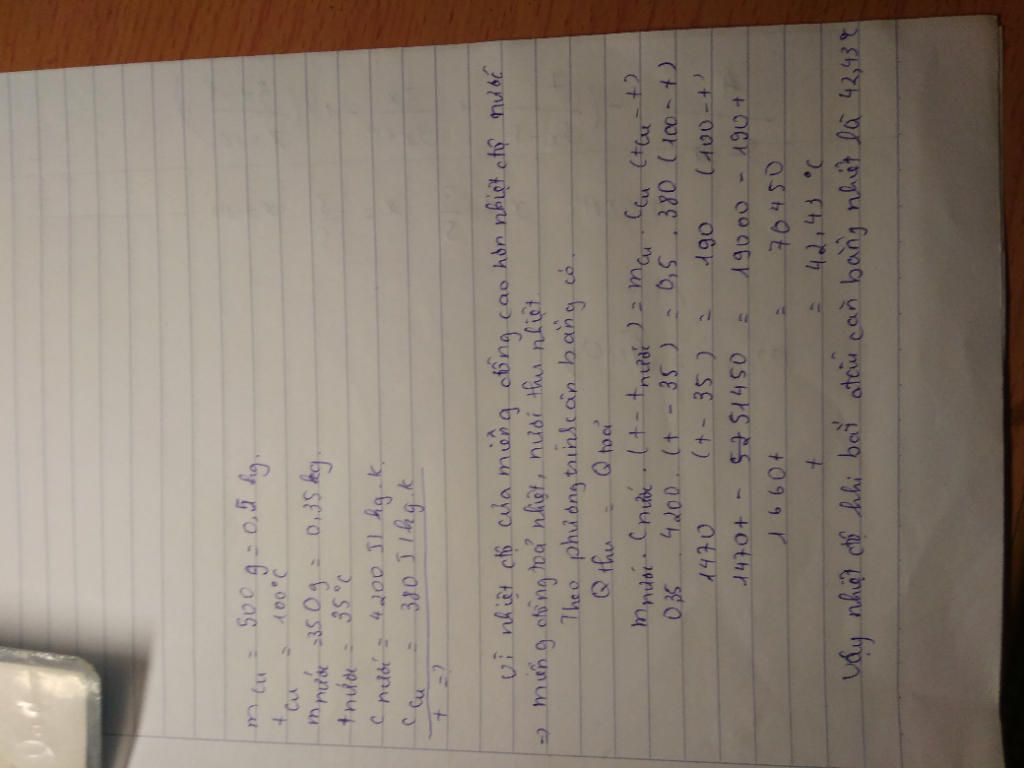 m Cu = 500 g = 0,5 kg.
t Cu = 100°C
m nước = 350 g = 0,35 kg.
t nước = 35°C
c nước = 4200 J/kg.K
c Cu = 380 J/kg.K
t = ?
Vì nhiệt độ của miếng đồng cao hơn nhiệt độ nước
=> miếng đồng toả nhiệt, nước thu nhiệt
Theo phương trình cân bằng có.
Q thu = Q toả
m nước . c nước . (t - t nước) = m Cu . c Cu (t Cu - t)
0,35 . 4200 . (t - 35) = 0,5 . 380 (100 - t)
1470 (t - 35) = 190 (100 - t)
1470t - 51450 = 19000 - 190t
1660t = 70450
t = 42,43 °C
Vậy nhiệt độ khi bắt đầu cân bằng nhiệt là 42,43°C